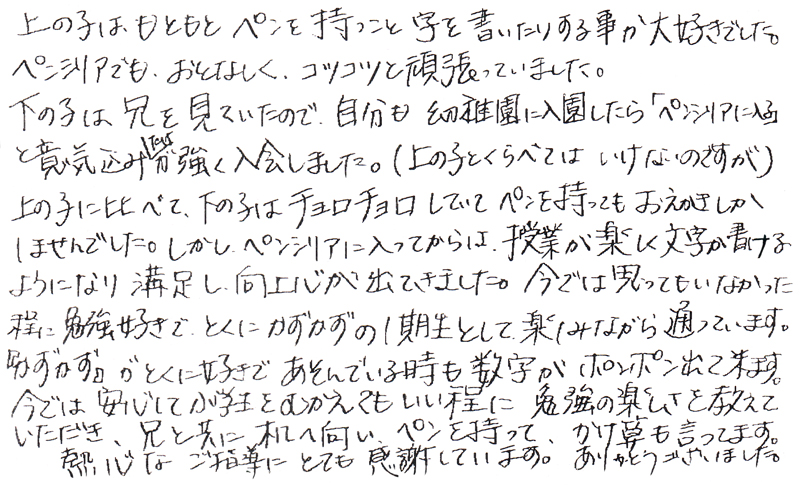 上の子は、もともと ペンを 持つこと 字を 書いたりする事が大好きでした。
ペンシリアでも、おとなしく、コツコツと頑張っていました。
下の子は、兄を見ていたので、自分も 幼稚園に入園したら「ペンシリアに入る」
と意気込み 強く入会しました。(上の子とくらべては いけないのですが)
上の子に比べて、下の子はチョロチョロしていて ペンを持っても おえかきしか
しませんでした。しかし、ペンシリアに入ってからは、授業が楽しく文字が書ける
ようになり 満足し、向上心が出てきました。今では思ってもいなかった
程に勉強好きで、とくにかずかずの1期生として楽しみながら通っています。
『かずかず』がとくに好きで あそんでいる時も数字がポンポン出て来ます。
今では安心して小学生をむかえてもいい程に 勉強の楽しさを教えて
いただき、兄と共に机へ向い、ペンを持って、かけ算も言ってます。
熱心な ご指導に とても感謝しています。 ありがとうございました。